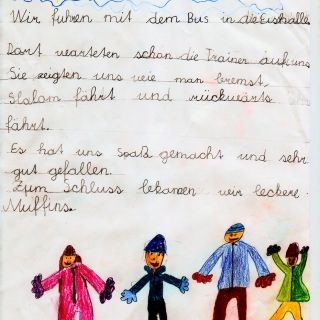 Wir fuhren mit dem Bus in die Eishalle
Dort warteten schon die Trainer auf uns
Sie zeigten uns wie man bremst,
Slalom fährt und rückwärts
fährt.
Es hat uns Spaß gemacht und sehr
gut gefallen.
Zum Schluss bekamen wir leckere
Muffins.